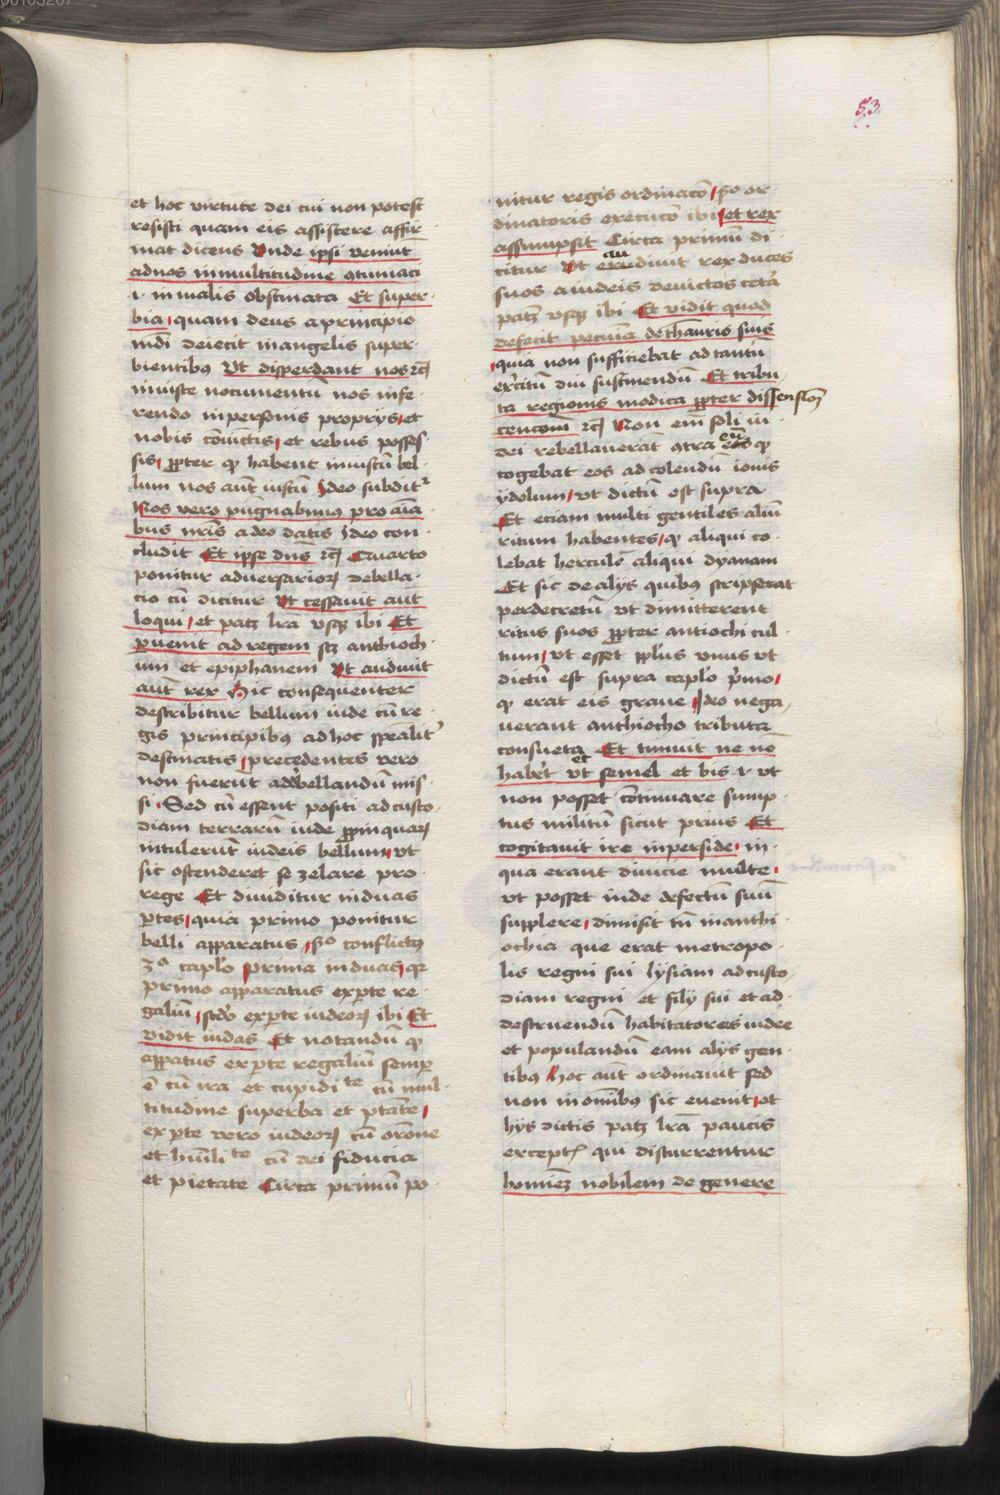 53
et hoc virtute dei cui non potest
resisti quam eis assistere affir
mat dicens Unde ipsi veniut
ad nos in multitudine ꝯtumaci
.i. in malis obstinata Et super
bia quam deus a principio
mūdi deiecit in angelis super
bientibus Ut disperdant nos ⁊c̄
iniuste nocumentū nos infe
rendo in personis propriis et
nobis cōiūctis et rebus posses
sis ꝓpter ꝙ habent iniustū bel
lum nos aūt iustū ideo subditr
Nos vero pūgnabimus pro aīa
bus nr̄is a deo datis ideo con
cludit Et ipse dn̄s ⁊c̄ Quarto
ponitur adversarioꝝ debella
cio cū dicitur Ut cessavit aūt
loqui et patꝫ lr̄a usqꝫ ibi Et
pervenit ad regem scꝫ anthioch
um et epiphanem Ut audivit
aūt rex Hic consequenter
describitur bellum iude cū re
gis principibus ad hoc spēalitr
destinatis precedentes vero
non fuerūt ad debellandū mis
si Sed cū essent positi ad custo
diam terrarū iude ꝓpinquaꝝ
intulerūt iudeis bellum ut
sic ostenderet se zelare pro
rege Et dividitur in duas
ꝑtes quia primo ponitur
belli apparatus sº conflictus
3º capl̄o prima in duas qꝛ
primo apparatus ex ꝑte re
galiū scdº ex ꝑte iudeoꝝ ibi Et
vidit iudas Et notandū ꝙ
apparatus ex ꝑte regaliū semꝑ
ē cū ira et cupidite cū mul
titudine superba et ptāte
ex ꝑte vero iudeoꝝ cū orōne
et humilite cū dei fiducia
et pietate Circa primū po
nitur regis ordinacō sº or
dinatoris execucō ibi et rex
assumpsit Circa primū di
citur Ut audivit rex duces
suos a iudeis devictos cetā
patꝫ usqꝫ ibi Et vidit quod
defecit pecunia de thauris suis
quia non sufficiebat ad tantū
exercitū diu sustinendū Et tribu
ta regionis modica ꝓpter dissensionē
⁊c̄ Non enī soli iu
dei rebellaverāt ꝯtra eū ꝙ
cogebat eos ad colendū iovis
ydolum ut dictū est supra
Et eciam multi gentiles aliū
ritum habentes ꝙ aliqui co
lebat herculē aliqui dyanam
Et sic de aliis quibus scripserat
per decretū ut dimitterent
ritus suos ꝓpter antiochi cul
tum ut esset ppl̄us unus ut
dictū est supra capl̄o p̄mo
ꝙ erat eis grave ideo nega
verant anthiocho tributa
consueta Et timuit ne nō
haberet ut et semel et bis .i. ut
non posset cōtinuare sump
tus militū sicut prius Et
cogitavit ire in perside in
qua erant divicie multe
ut posset inde defectū suū
supplere dimisit tn̄ in anthi
ochia que erat metropo
lis regni sui lysiam ad custo
diam regni et filii sui et ad
destruendū habitatores iudee
et populandū eam aliis gen
tibus hoc aūt ordinavit sed
non in omībus sic evenit et
hys dictis patꝫ lr̄a paucis
exceptꝭ qui discurrentur
homīeꝫ nobilem de genere